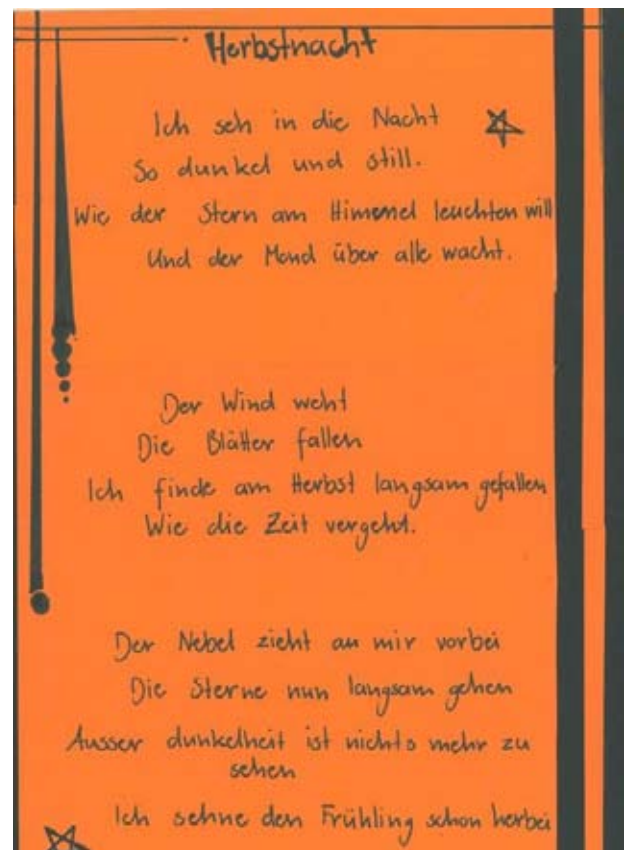 Herbstnacht
Ich seh in die Nacht
So dunkel und still.
Wie der Stern am Himmel leuchten will
Und der Mond über alle wacht.
Der Wind weht
Die Blätter fallen
Ich finde am Herbst langsam gefallen
Wie die Zeit vergeht.
Der Nebel zieht an mir vorbei
Die Sterne nun langsam gehen
Ausser dunkelheit ist nichts mehr zu
sehen
Ich sehne den Frühling schon herbei